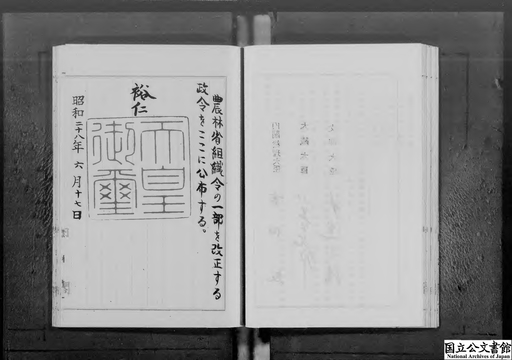 農林省組織令の一部を改正する
政令をここに公布する。
裕仁
天皇
御璽
昭和二十八年六月十七日
国立公文書館
National Archives of Japan